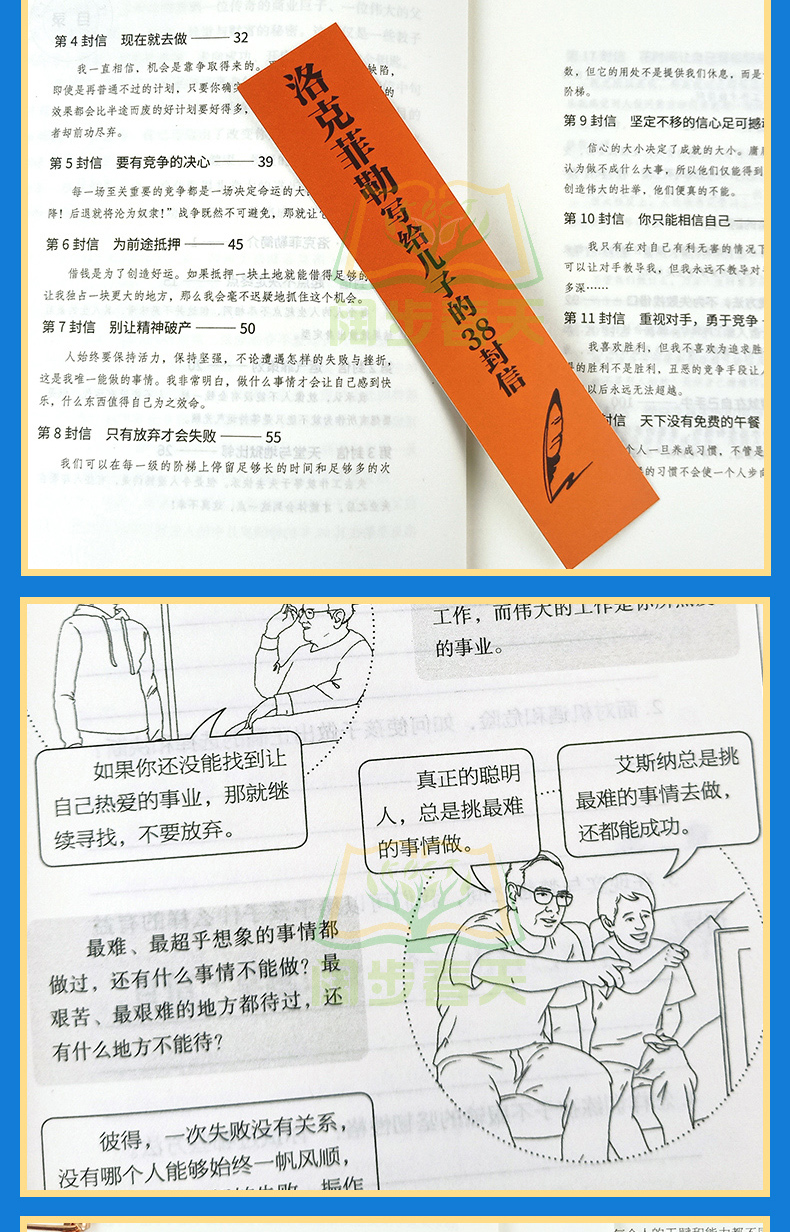 第 4 封信 现在就去做 —— 32
我一直相信，机会是靠争取得来的。
缺陷，
即使是再普通不过的计划，只要你确
的
效果都会比半途而废的好计划要好得多，
者却前功尽弃。
第 5 封信 要有竞争的决心 —— 39
每一场至关重要的竞争都是一场决定命运的大
降！后退就将沦为奴隶！”战争既然不可避免，那就让
第 6 封信 为前途抵押 —— 45
借钱是为了创造好运。如果抵押一块土地就能借得足够的
让我独占一块更大的地方，那么我会毫不迟疑地抓住这个机会。
第 7 封信 别让精神破产 —— 50
人始终要保持活力，保持坚强，不论遭遇怎样的失败与挫折，
这是我唯一能做的事情。我非常明白，做什么事情才会让自己感到快
乐，什么东西值得自己为之效命。
第 8 封信 只有放弃才会失败 —— 55
我们可以在每一级的阶梯上停留足够长的时间和足够多的次
洛克菲勒写给儿子的38封信
数，但它的用处不是提供我们休息，而是
阶梯。
第 9 封信 坚定不移的信心足可撼
信心的大小决定了成就的大小。庸
认为做不成什么大事，所以他们仅能得到
创造伟大的壮举，他们便真的不能。
第 10 封信 你只能相信自己 ——
我只有在对自己有利无害的情况下
可以让对手教导我，但我永远不教导对
多深……
第 11 封信 重视对手，勇于竞争
我喜欢胜利，但我不喜欢为追求胜
的胜利不是胜利，丑恶的竞争手段让人
以后永远无法超越。
封信 天下没有免费的午餐
个人一旦养成习惯，不管是
的习惯不会使一个人步向
阔步春天
工作，而伟大的工作是你所热爱
的事业。
如果你还没能找到让
自己热爱的事业，那就继
续寻找，不要放弃。
真正的聪明
人，总是挑最难
的事情做。
艾斯纳总是挑
最难的事情去做，
还都能成功。
最难、最超乎想象的事情都
做过，还有什么事情不能做？最
艰苦、最艰难的地方都待过，还
有什么地方不能待？
阔步春天
彼得，一次失败没有关系，
没有哪个人能够始终一帆风顺，